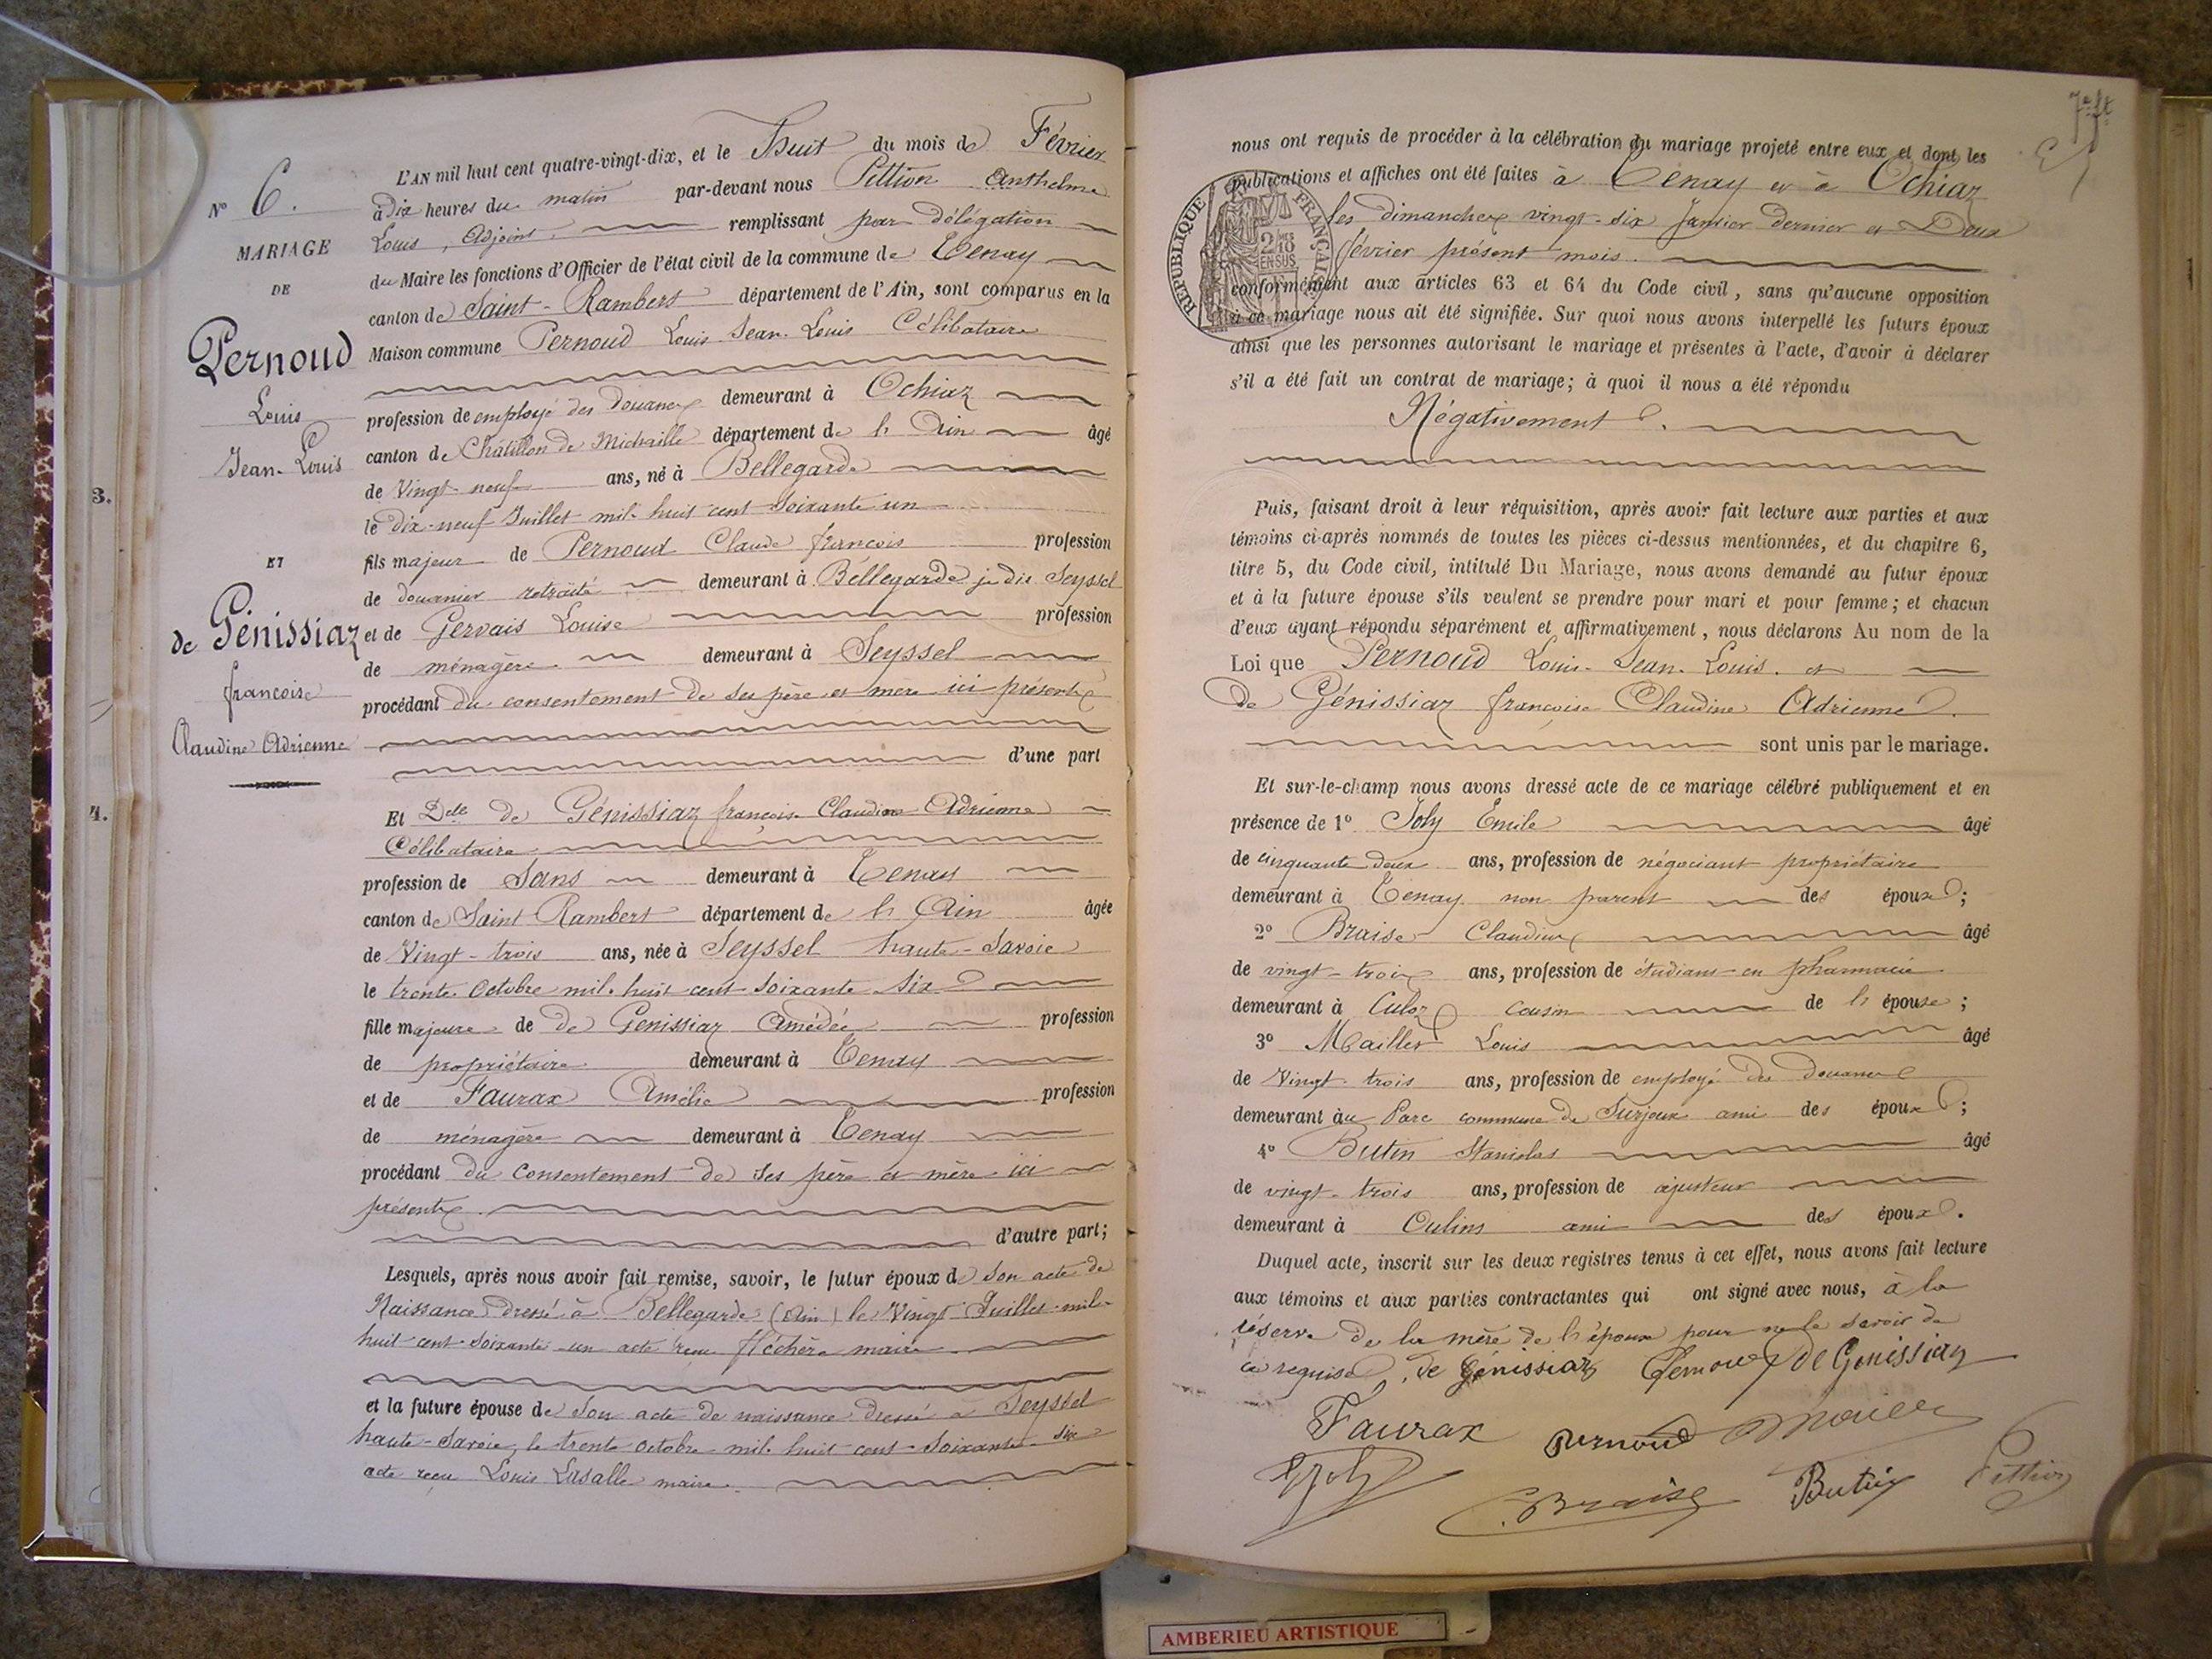 N° 6.
MARIAGE
DE
Pernoud
Louis
Jean-Louis
ET
de Génissiaz
françoise
Claudine Adrienne
3.
4.
L'AN mil huit cent quatre-vingt-dix, et le Huit du mois de Février
à Dix heures du matin par-devant nous Pittion Anthelme
Louis, Adjoint, remplissant par délégation
du Maire les fonctions d'Officier de l'état civil de la commune de Tenay
canton de Saint-Rambert département de l'Ain, sont comparus en la
Maison commune Pernoud Louis Jean-Louis Célibataire
profession de employé des Douanes demeurant à Ochiaz
canton de Châtillon de Michaille département de l'Ain âgé
de Vingt-neuf ans, né à Bellegarde
le dix-neuf Juillet mil huit cent soixante un
fils majeur de Pernoud Claude françois profession
de douanier retraité demeurant à Bellegarde jadis Seyssel
et de Gervais Louise profession
de ménagère demeurant à Seyssel
procédant du consentement de ses père et mère ici présents
d'une part
Et Delle de Génissiaz françoise Claudine Adrienne
Célibataire
profession de Sans demeurant à Tenay
canton de Saint Rambert département de l'Ain âgée
de Vingt-trois ans, née à Seyssel haute-Savoie
le trente Octobre mil huit cent soixante six
fille majeure de de Génissiaz Amédée profession
de propriétaire demeurant à Tenay
et de Faurax Amélie profession
de ménagère demeurant à Tenay
procédant du consentement de ses père et mère ici
présents.
d'autre part;
Lesquels, après nous avoir fait remise, savoir, le futur époux de son acte de
Naissance dressé à Bellegarde (Ain) le Vingt Juillet mil
huit cent soixante-un acte reçu fléchère maire
et la future épouse de son acte de naissance dressé à Seyssel
haute-Savoie, le trente octobre mil huit cent soixante-six
acte reçu Louis Lasalle maire.
7e ft
nous ont requis de procéder à la célébration du mariage projeté entre eux et dont les
publications et affiches ont été faites à Tenay et à Ochiaz
les dimanches vingt-six Janvier dernier et Deux
février présent mois.
RÉPUBLIQUE FRANÇAISE
2/10 EN SUS
conformément aux articles 63 et 64 du Code civil, sans qu'aucune opposition
à ce mariage nous ait été signifiée. Sur quoi nous avons interpellé les futurs époux
ainsi que les personnes autorisant le mariage et présentes à l'acte, d'avoir à déclarer
s'il a été fait un contrat de mariage; à quoi il nous a été répondu
Négativement.
Puis, faisant droit à leur réquisition, après avoir fait lecture aux parties et aux
témoins ci-après nommés de toutes les pièces ci-dessus mentionnées, et du chapitre 6,
titre 5, du Code civil, intitulé Du Mariage, nous avons demandé au futur époux
et à la future épouse s'ils veulent se prendre pour mari et pour femme; et chacun
d'eux ayant répondu séparément et affirmativement, nous déclarons Au nom de la
Loi que Pernoud Louis-Jean-Louis. et
de Génissiaz françoise Claudine Adrienne.
sont unis par le mariage.
Et sur-le-champ nous avons dressé acte de ce mariage célébré publiquement et en
présence de 1° Joly Emile âgé
de cinquante deux ans, profession de négociant propriétaire
demeurant à Tenay non parent des époux;
2° Braise Claudius âgé
de vingt-trois ans, profession de étudiant en pharmacie
demeurant à Culoz cousin de l'épouse;
3° Mailler Louis âgé
de Vingt-trois ans, profession de employé des douanes
demeurant au Parc commune de Surjoux ami des époux;
4° Butin Stanislas âgé
de vingt-trois ans, profession de ajusteur
demeurant à Oulins ami des époux.
Duquel acte, inscrit sur les deux registres tenus à cet effet, nous avons fait lecture
aux témoins et aux parties contractantes qui ont signé avec nous, à la
réserve de la mère de l'époux pour ne le savoir de
ce requise. de Génissiaz Pernoud de Genissiaz
Faurax Pernoud
Joly C. Braise Butin Pittion
AMBERIEU ARTISTIQUE